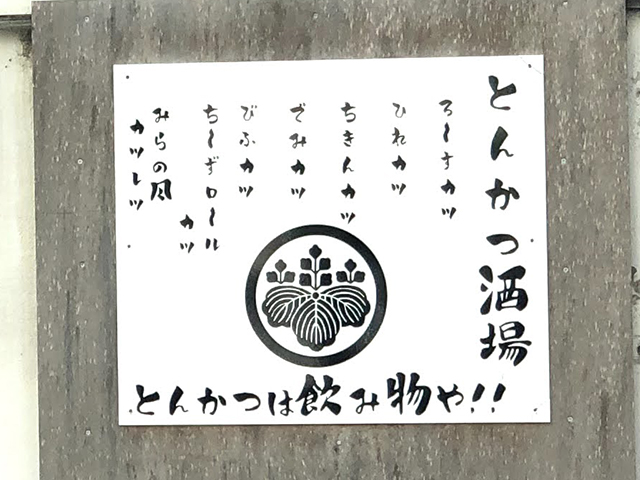 とんかつ酒場
ろーすカツ
ひれカツ
ちきんカツ
ごみカツ
びふカツ
ちーずロール
カツ
みらの風
カツレツ
とんかつは飲み物や!!